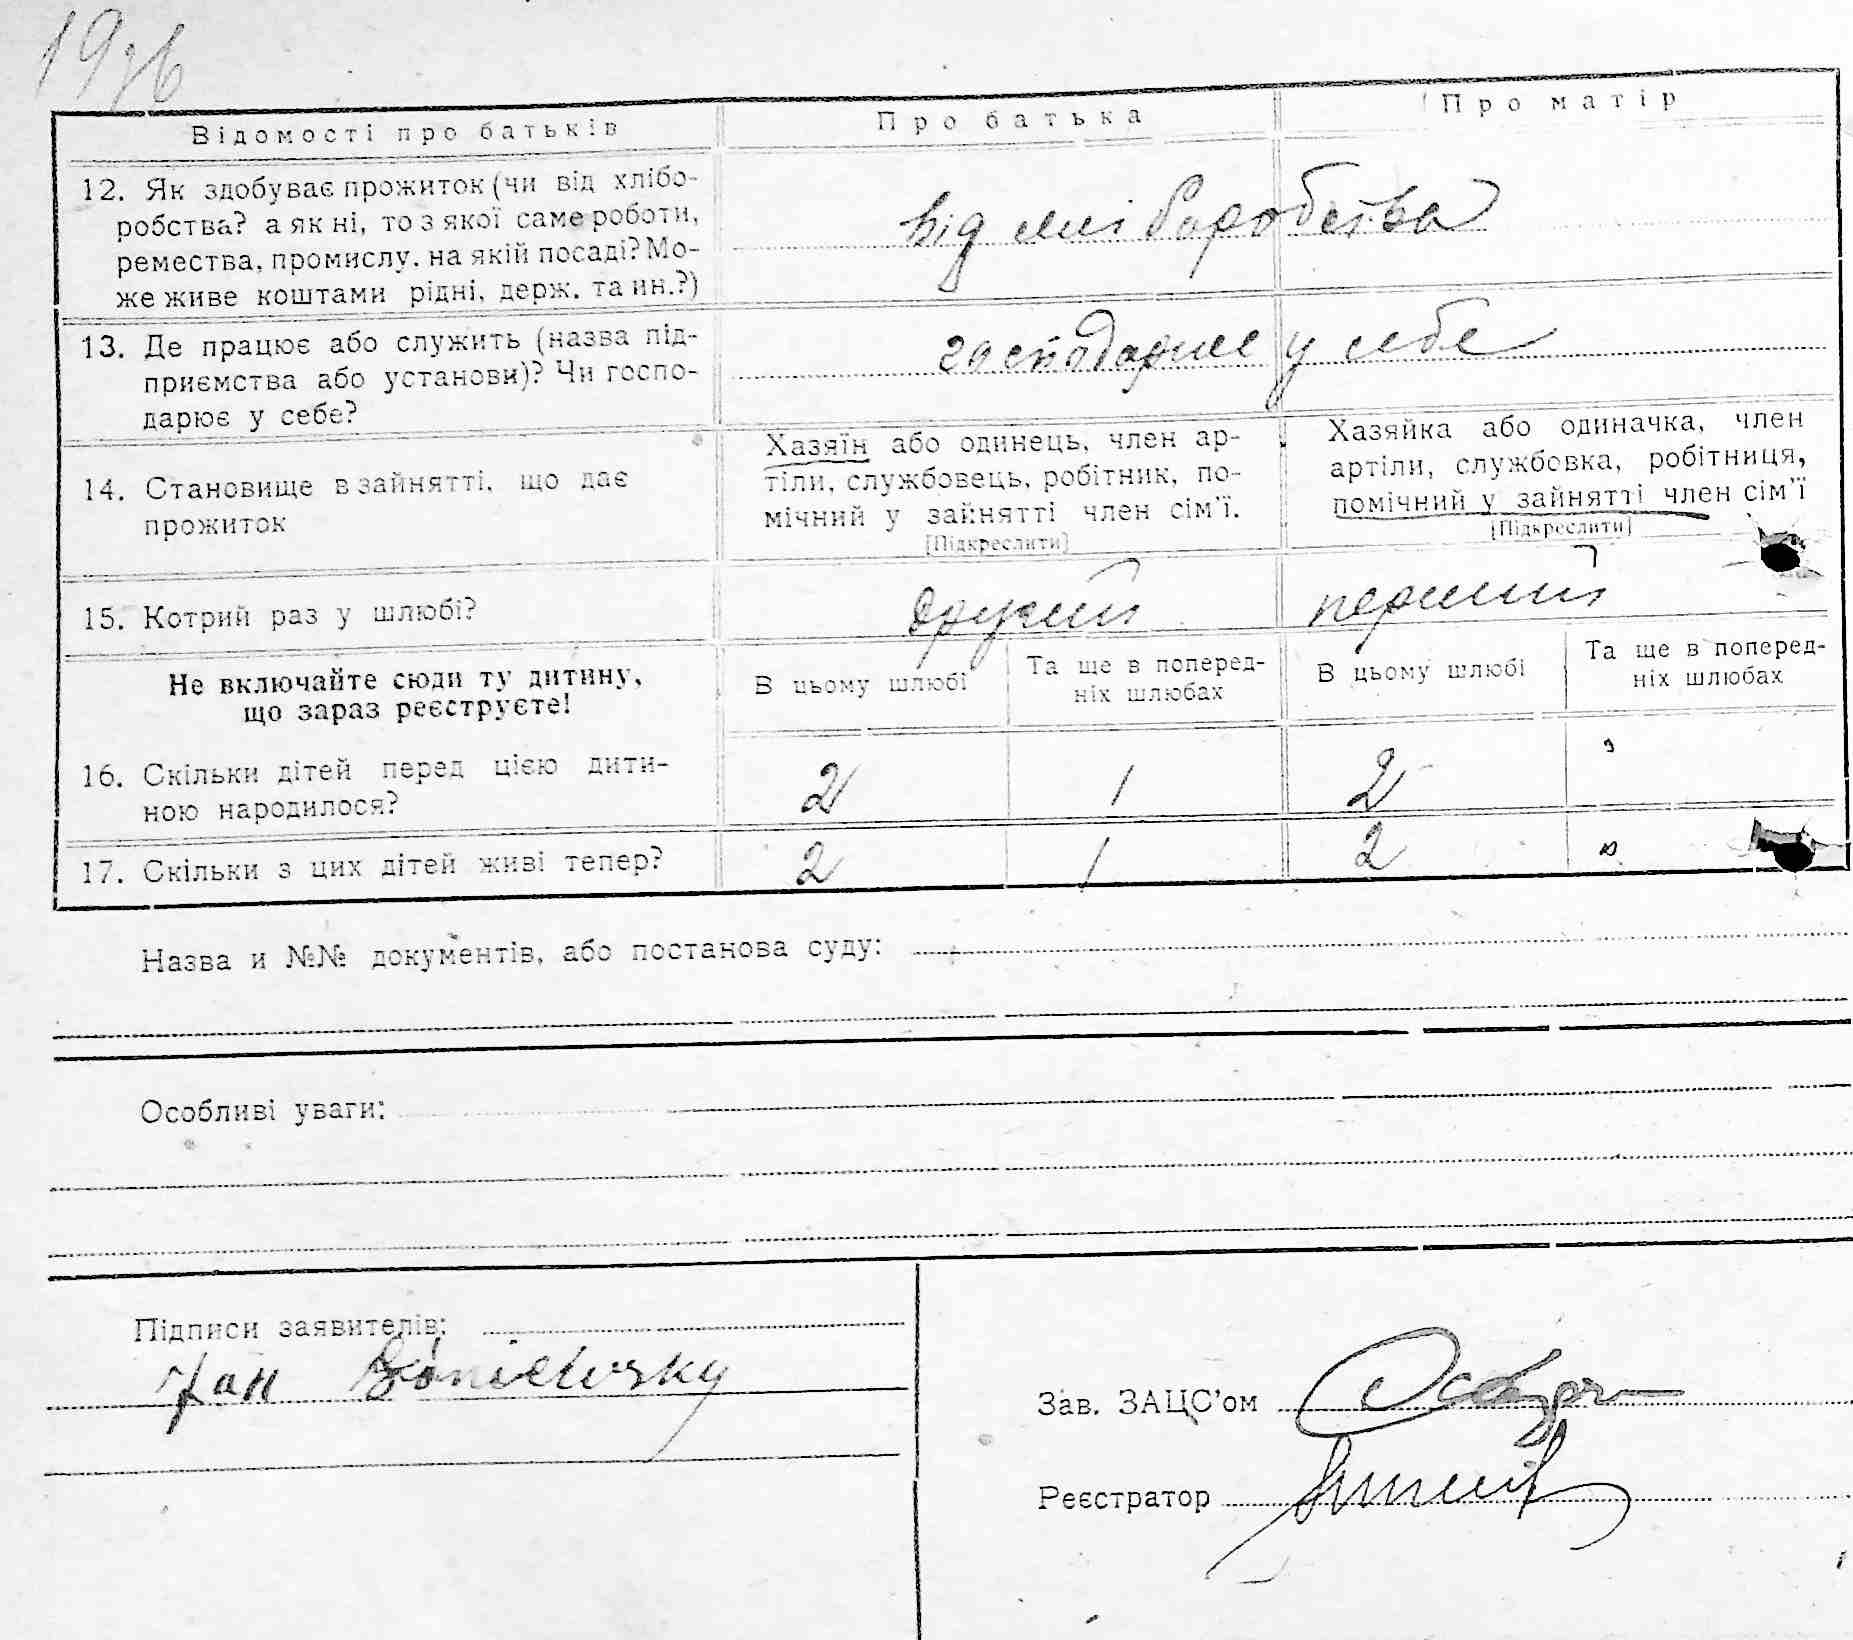 Відомості про батьків
Про батька
Про матір
12. Як здобуває прожиток (чи від хлібо-
робства? а як ні, то з якої саме роботи,
ремества, промислу. на якій посаді? Мо-
же живе коштами рідні, держ. та ин.?)
від хліборобства
13. Де працює або служить (назва під-
приємства або установи)? Чи госпо-
дарює у себе?
господарює у себе
14. Становище в зайнятті, що дає
прожиток
Хазяїн або одинець, член ар-
тіли, службовець, робітник, по-
мічний у зайнятті член сім'ї.
[Підкреслити]
Хазяйка або одиначка, член
артіли, службовка, робітниця,
помічний у зайнятті член сім'ї
[Підкреслити]
15. Котрий раз у шлюбі?
другий
перший
Не включайте сюди ту дитину,
що зараз реєструєте!
В цьому шлюбі
Та ще в поперед-
ніх шлюбах
В цьому шлюбі
Та ще в поперед-
ніх шлюбах
16. Скільки дітей перед цією дити-
ною народилося?
2 1 2
17. Скільки з цих дітей живі тепер?
2 1 2
Назва и №№ документів, або постанова суду:
Особливі уваги:
Підписи заявителів:
Jan
Зав. ЗАЦС'ом
Реєстратор